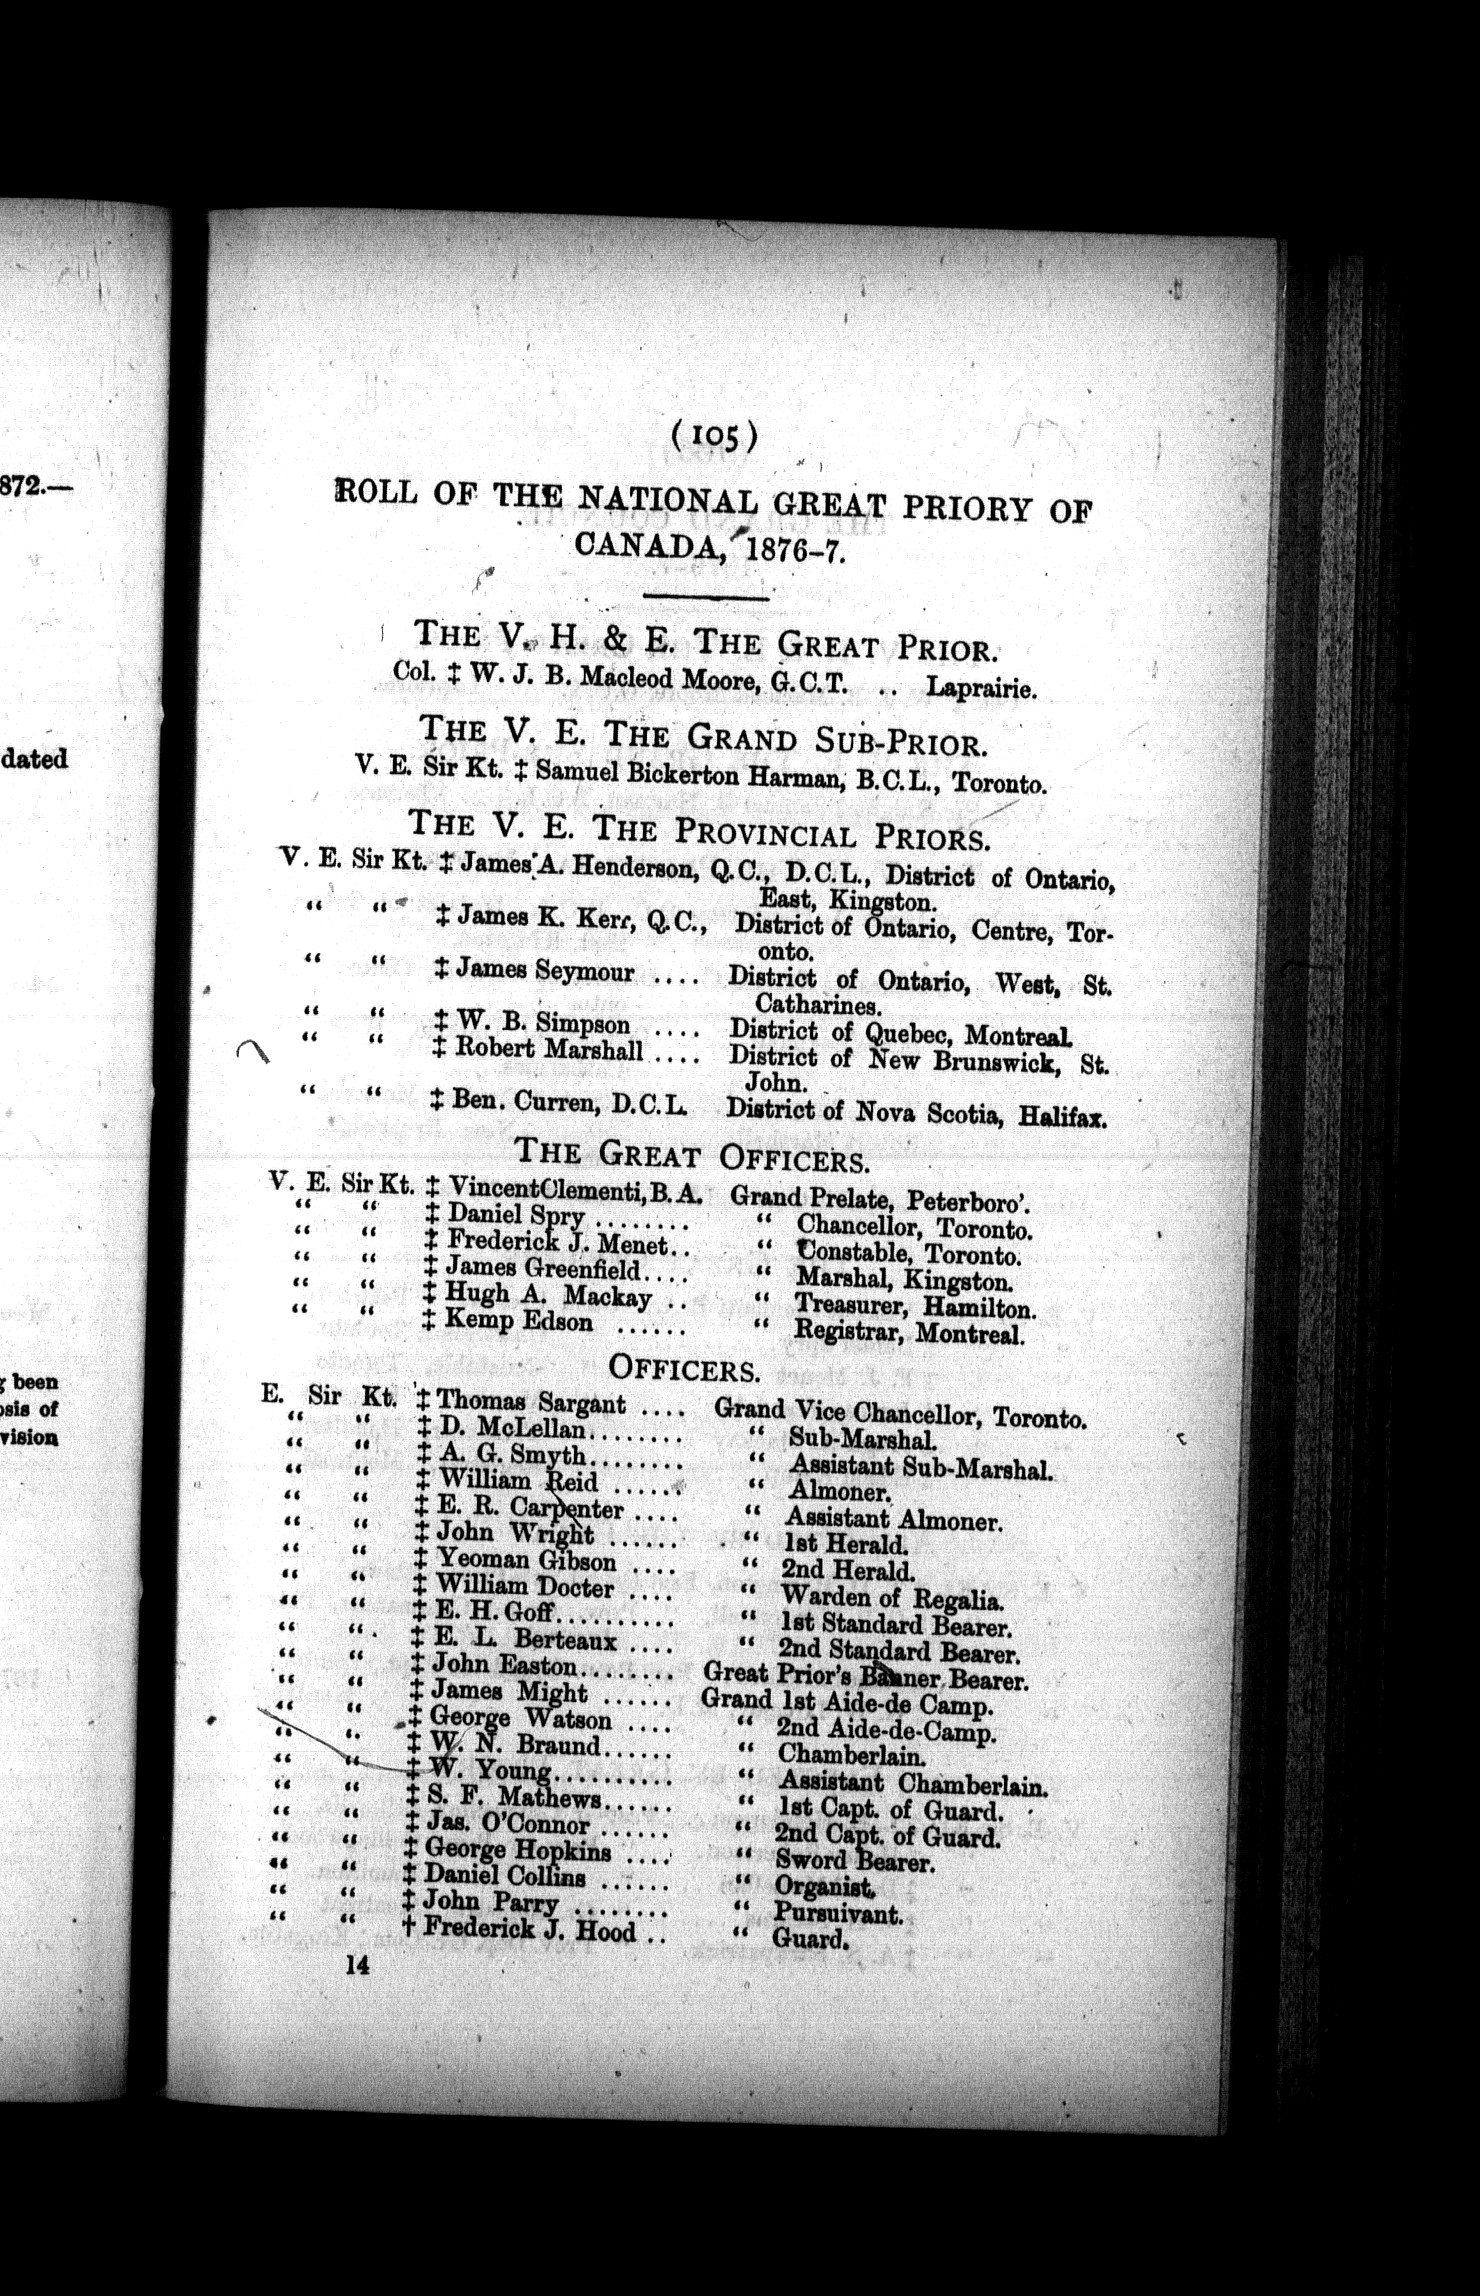 872.—
dated
been
osis of
vision
(105)
ROLL OF THE NATIONAL GREAT PRIORY OF
CANADA, 1876–7.
THE V. H. & E. THE GREAT PRIOR.
Col. ‡ W. J. B. Macleod Moore, G.C.T. .. Laprairie.
THE V. E. THE GRAND SUB-PRIOR.
V. E. Sir Kt. ‡ Samuel Bickerton Harman, B.C.L., Toronto.
THE V. E. THE PROVINCIAL PRIORS.
V. E. Sir Kt. ‡ James A. Henderson, Q.C., D.C.L., District of Ontario,
East, Kingston.
“ “ ‡ James K. Kerr, Q.C., District of Ontario, Centre, Tor-
onto.
“ “ ‡ James Seymour .... District of Ontario, West, St.
Catharines.
“ “ ‡ W. B. Simpson .... District of Quebec, Montreal.
“ “ ‡ Robert Marshall .... District of New Brunswick, St.
John.
“ “ ‡ Ben. Curren, D.C.L. District of Nova Scotia, Halifax.
THE GREAT OFFICERS.
V. E. Sir Kt. ‡ Vincent Clementi, B.A. Grand Prelate, Peterboro’.
“ “ ‡ Daniel Spry ........ “ Chancellor, Toronto.
“ “ ‡ Frederick J. Menet.. “ Constable, Toronto.
“ “ ‡ James Greenfield.... “ Marshal, Kingston.
“ “ ‡ Hugh A. Mackay .. “ Treasurer, Hamilton.
“ “ ‡ Kemp Edson ...... “ Registrar, Montreal.
OFFICERS.
E. Sir Kt. ‡ Thomas Sargant .... Grand Vice Chancellor, Toronto.
“ “ ‡ D. McLellan........ “ Sub-Marshal.
“ “ ‡ A. G. Smyth........ “ Assistant Sub-Marshal.
“ “ ‡ William Reid ...... “ Almoner.
“ “ ‡ E. R. Carpenter .... “ Assistant Almoner.
“ “ ‡ John Wright ...... “ 1st Herald.
“ “ ‡ Yeoman Gibson .... “ 2nd Herald.
“ “ ‡ William Docter .... “ Warden of Regalia.
“ “ ‡ E. H. Goff.......... “ 1st Standard Bearer.
“ “ ‡ E. L. Berteaux .... “ 2nd Standard Bearer.
“ “ ‡ John Easton........ Great Prior’s Banner Bearer.
“ “ ‡ James Might ...... Grand 1st Aide-de Camp.
“ “ ‡ George Watson .... “ 2nd Aide-de-Camp.
“ “ ‡ W. N. Braund...... “ Chamberlain.
“ “ ‡ W. Young.......... “ Assistant Chamberlain.
“ “ ‡ S. F. Mathews...... “ 1st Capt. of Guard.
“ “ ‡ Jas. O’Connor ...... “ 2nd Capt. of Guard.
“ “ ‡ George Hopkins .... “ Sword Bearer.
“ “ ‡ Daniel Collins ...... “ Organist.
“ “ ‡ John Parry ........ “ Pursuivant.
“ “ † Frederick J. Hood .. “ Guard.
14